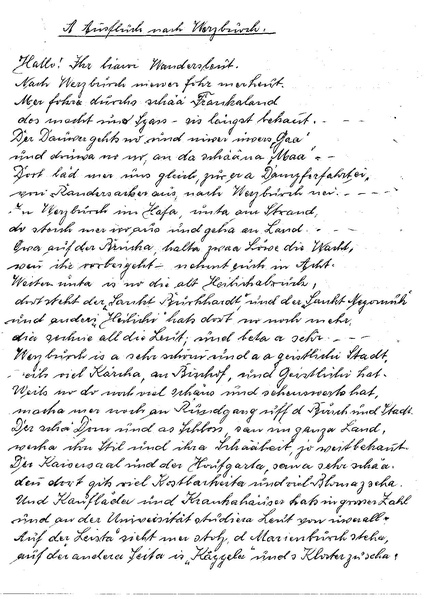 A Ausflüch nach Werzbürch.
Hallo! Ihr liawi Wandersleut.
Nach Werzbürch niewer fohr mer heut.
Mer fohra durchs schöä Frankaland
des macht uns Spass - sis längst bekannt.
Der Dauwer gehts no, und niwer ins Gaa
und drüwa no no, an da schääna Maa.
Dort läd mer uns gleich zu era Dampferfahrt ei,
vom Randersacker aus, nach Werzbürch nei.
In Werzbürch im Hafa, unta am Strand,
do steich mer wor aus und geha an Land.
Owa auf der Brücka, halta zwaa Löwe die Wacht,
wenn ihr vorbei geht - nehmt euch in Acht.
Weiter unta is no die alt Heilichabrück,
dort steht der "Sankt Bürkhardt" und der "Sankt Nepomuk"
und andere "Heilichi" hats dort no noch mehr,
die sechne all die Leut; und beta a sehr.
Werzbürch is a sehr schöni und aa geistlichi Stadt,
- eils viel Kärcha, an Bischof, und Geistlichi hat.
Weils no do noch viel schäns und sehenswerts hat,
macha mer noch an Rundgang uff d Bürch und Stadt.
Der schä Dom und as Schloss, saw im ganza Land,
wecha ihn Stil und ihra Schääheit, jo weit bekannt.
Der Kaisersaal und der Houfgarta, san a sehr schää.
denn dort gits viel Kostbarkeita und viel Bloma zseha.
Und Kaufläda und Krankahäuser hats in grosser Zahl
und an der Universität studiera Leut von üwerall.
Auf der Leista sieht mer stolz, d Marienbürch steha,
auf der andera Seita is "Käppela" und s Kloster zu seha.